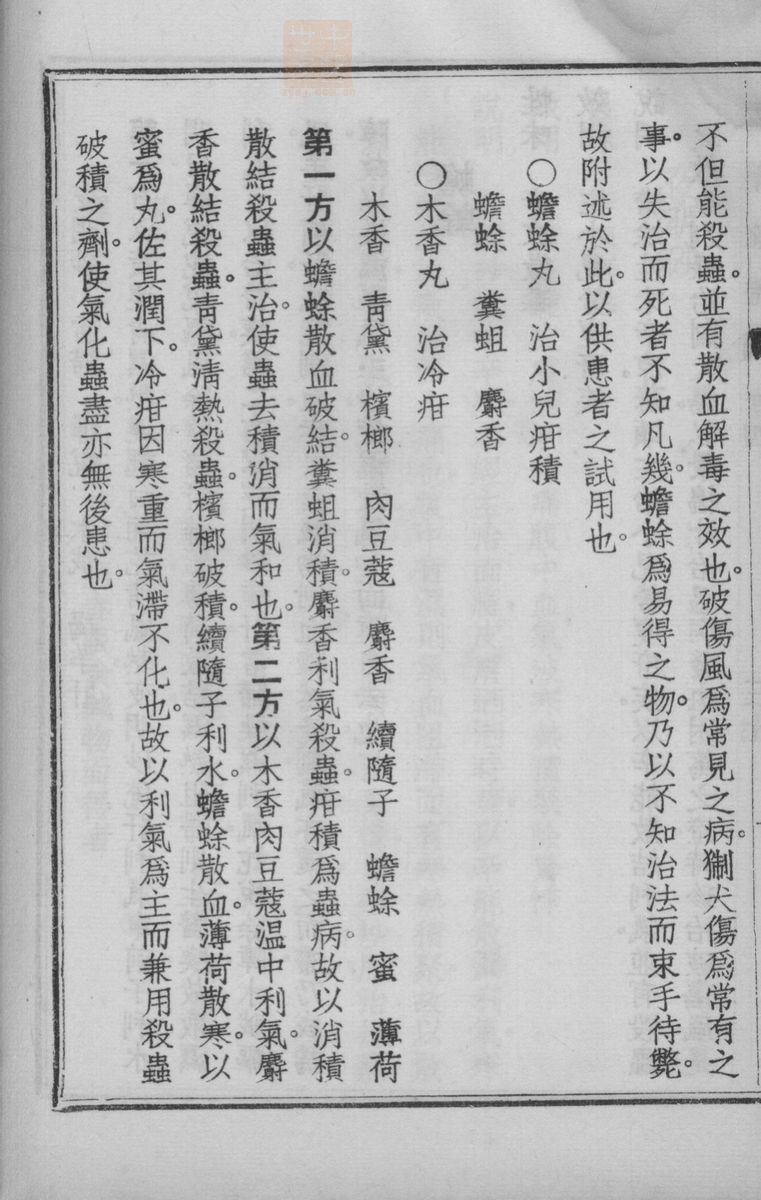 不但能殺蟲。並有散血解毒之效也。破傷風爲常見之病。猘犬傷爲常有之
事。以失治而死者不知凡幾。蟾蜍爲易得之物。乃以不知治法而束手待斃。
故附述於此。以供患者之試用也。
〇蟾蜍丸 治小兒疳積
蟾蜍 糞蛆 麝香
〇木香丸 治冷疳
木香 青黛 檳榔 肉豆蔻 麝香 續隨子 蟾蜍 蜜 薄荷
第一方以蟾蜍散血破結。糞蛆消積。麝香利氣殺蟲。疳積爲蟲病。故以消積
散結殺蟲主治。使蟲去積消而氣和也。第二方以木香肉豆蔻温中利氣。麝
香散結殺蟲。青黛清熱殺蟲。檳榔破積。續隨子利水。蟾蜍散血。薄荷散寒。以
蜜爲丸。佐其潤下。冷疳因寒重而氣滯不化也。故以利氣爲主而兼用殺蟲
破積之劑。使氣化蟲盡亦無後患也。